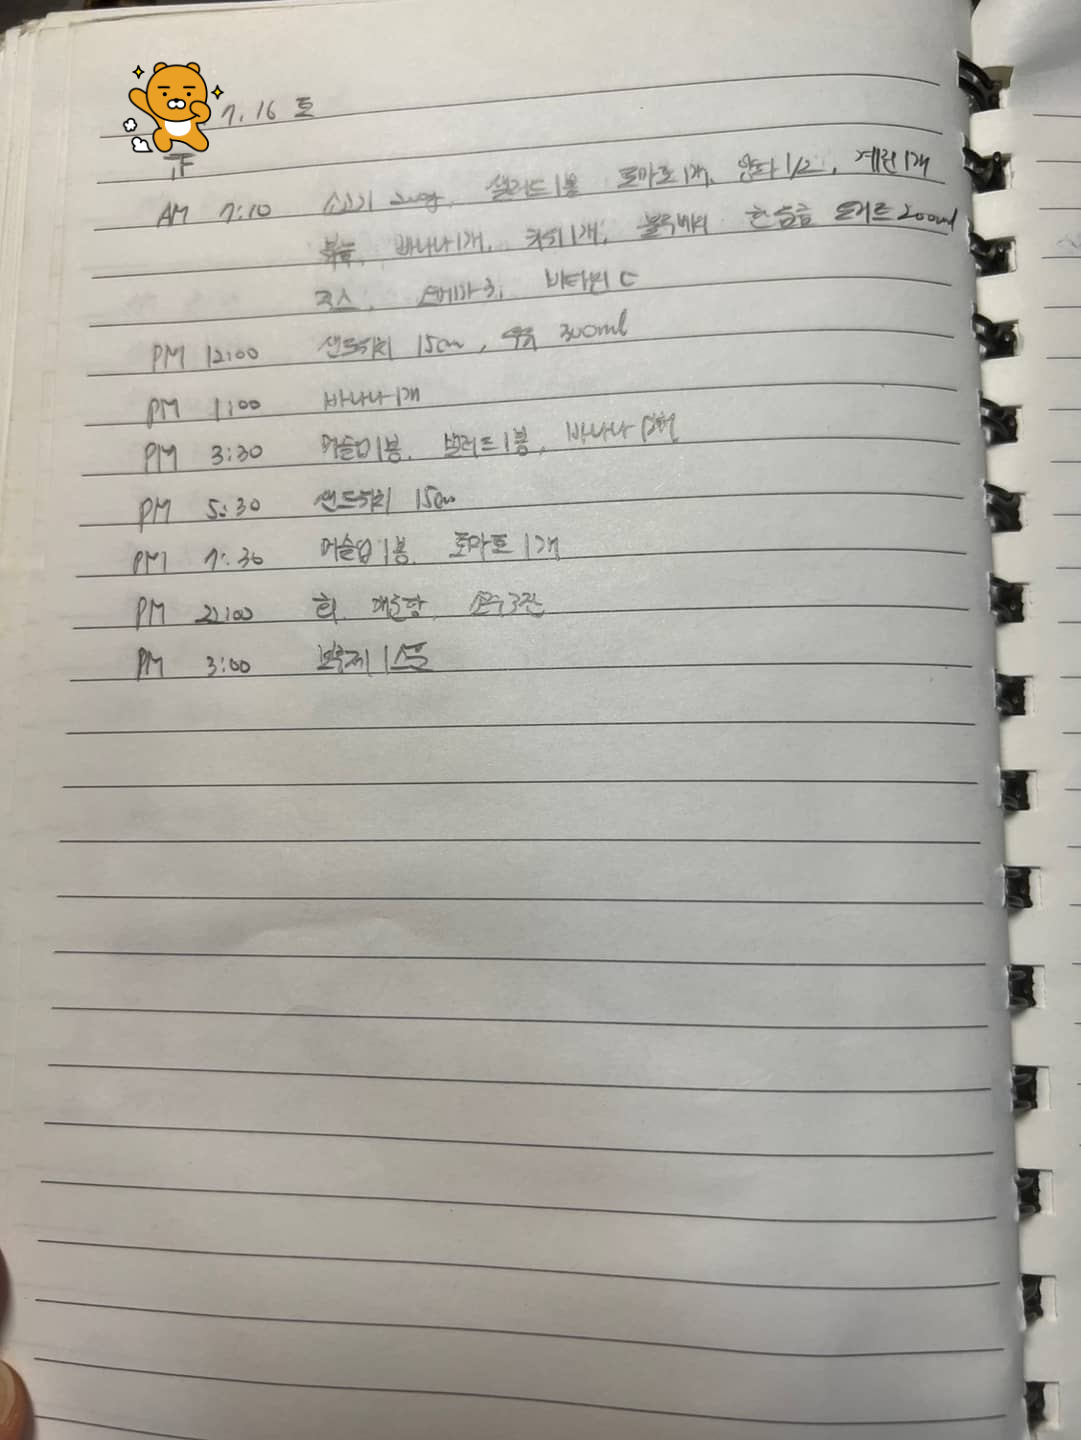 7. 16 토
AM 7:10 소고기 200g, 샐러드 1봉 토마토 1개, 양파 1/2, 계란 1개
바나나 1개, 키위 1개, 블루베리 한 움큼 요거트 200ml
주스, 오메가 3, 비타민 C
PM 12:00 샌드위치 15cm, 우유 300ml
PM 1:00 바나나 1개
PM 3:30 머슬밀 1봉, 샐러드 1봉, 바나나
PM 5:30 샌드위치 15cm
PM 7:30 머슬밀 1봉, 토마토 1개
PM 21:00 회, 매운탕, 소주 3잔
PM 3:00 보충제 1스푼